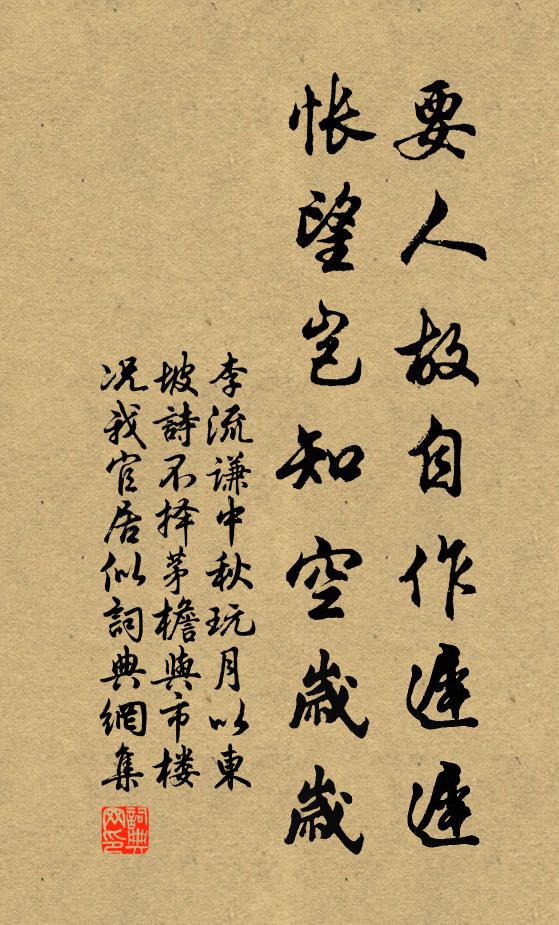 要人故自作遲遲
悵望豈知空歲歲
李流谦中秋玩月以東
坡詩不择茅檐與市楼
况我官居似詞典網集
詞典
网印